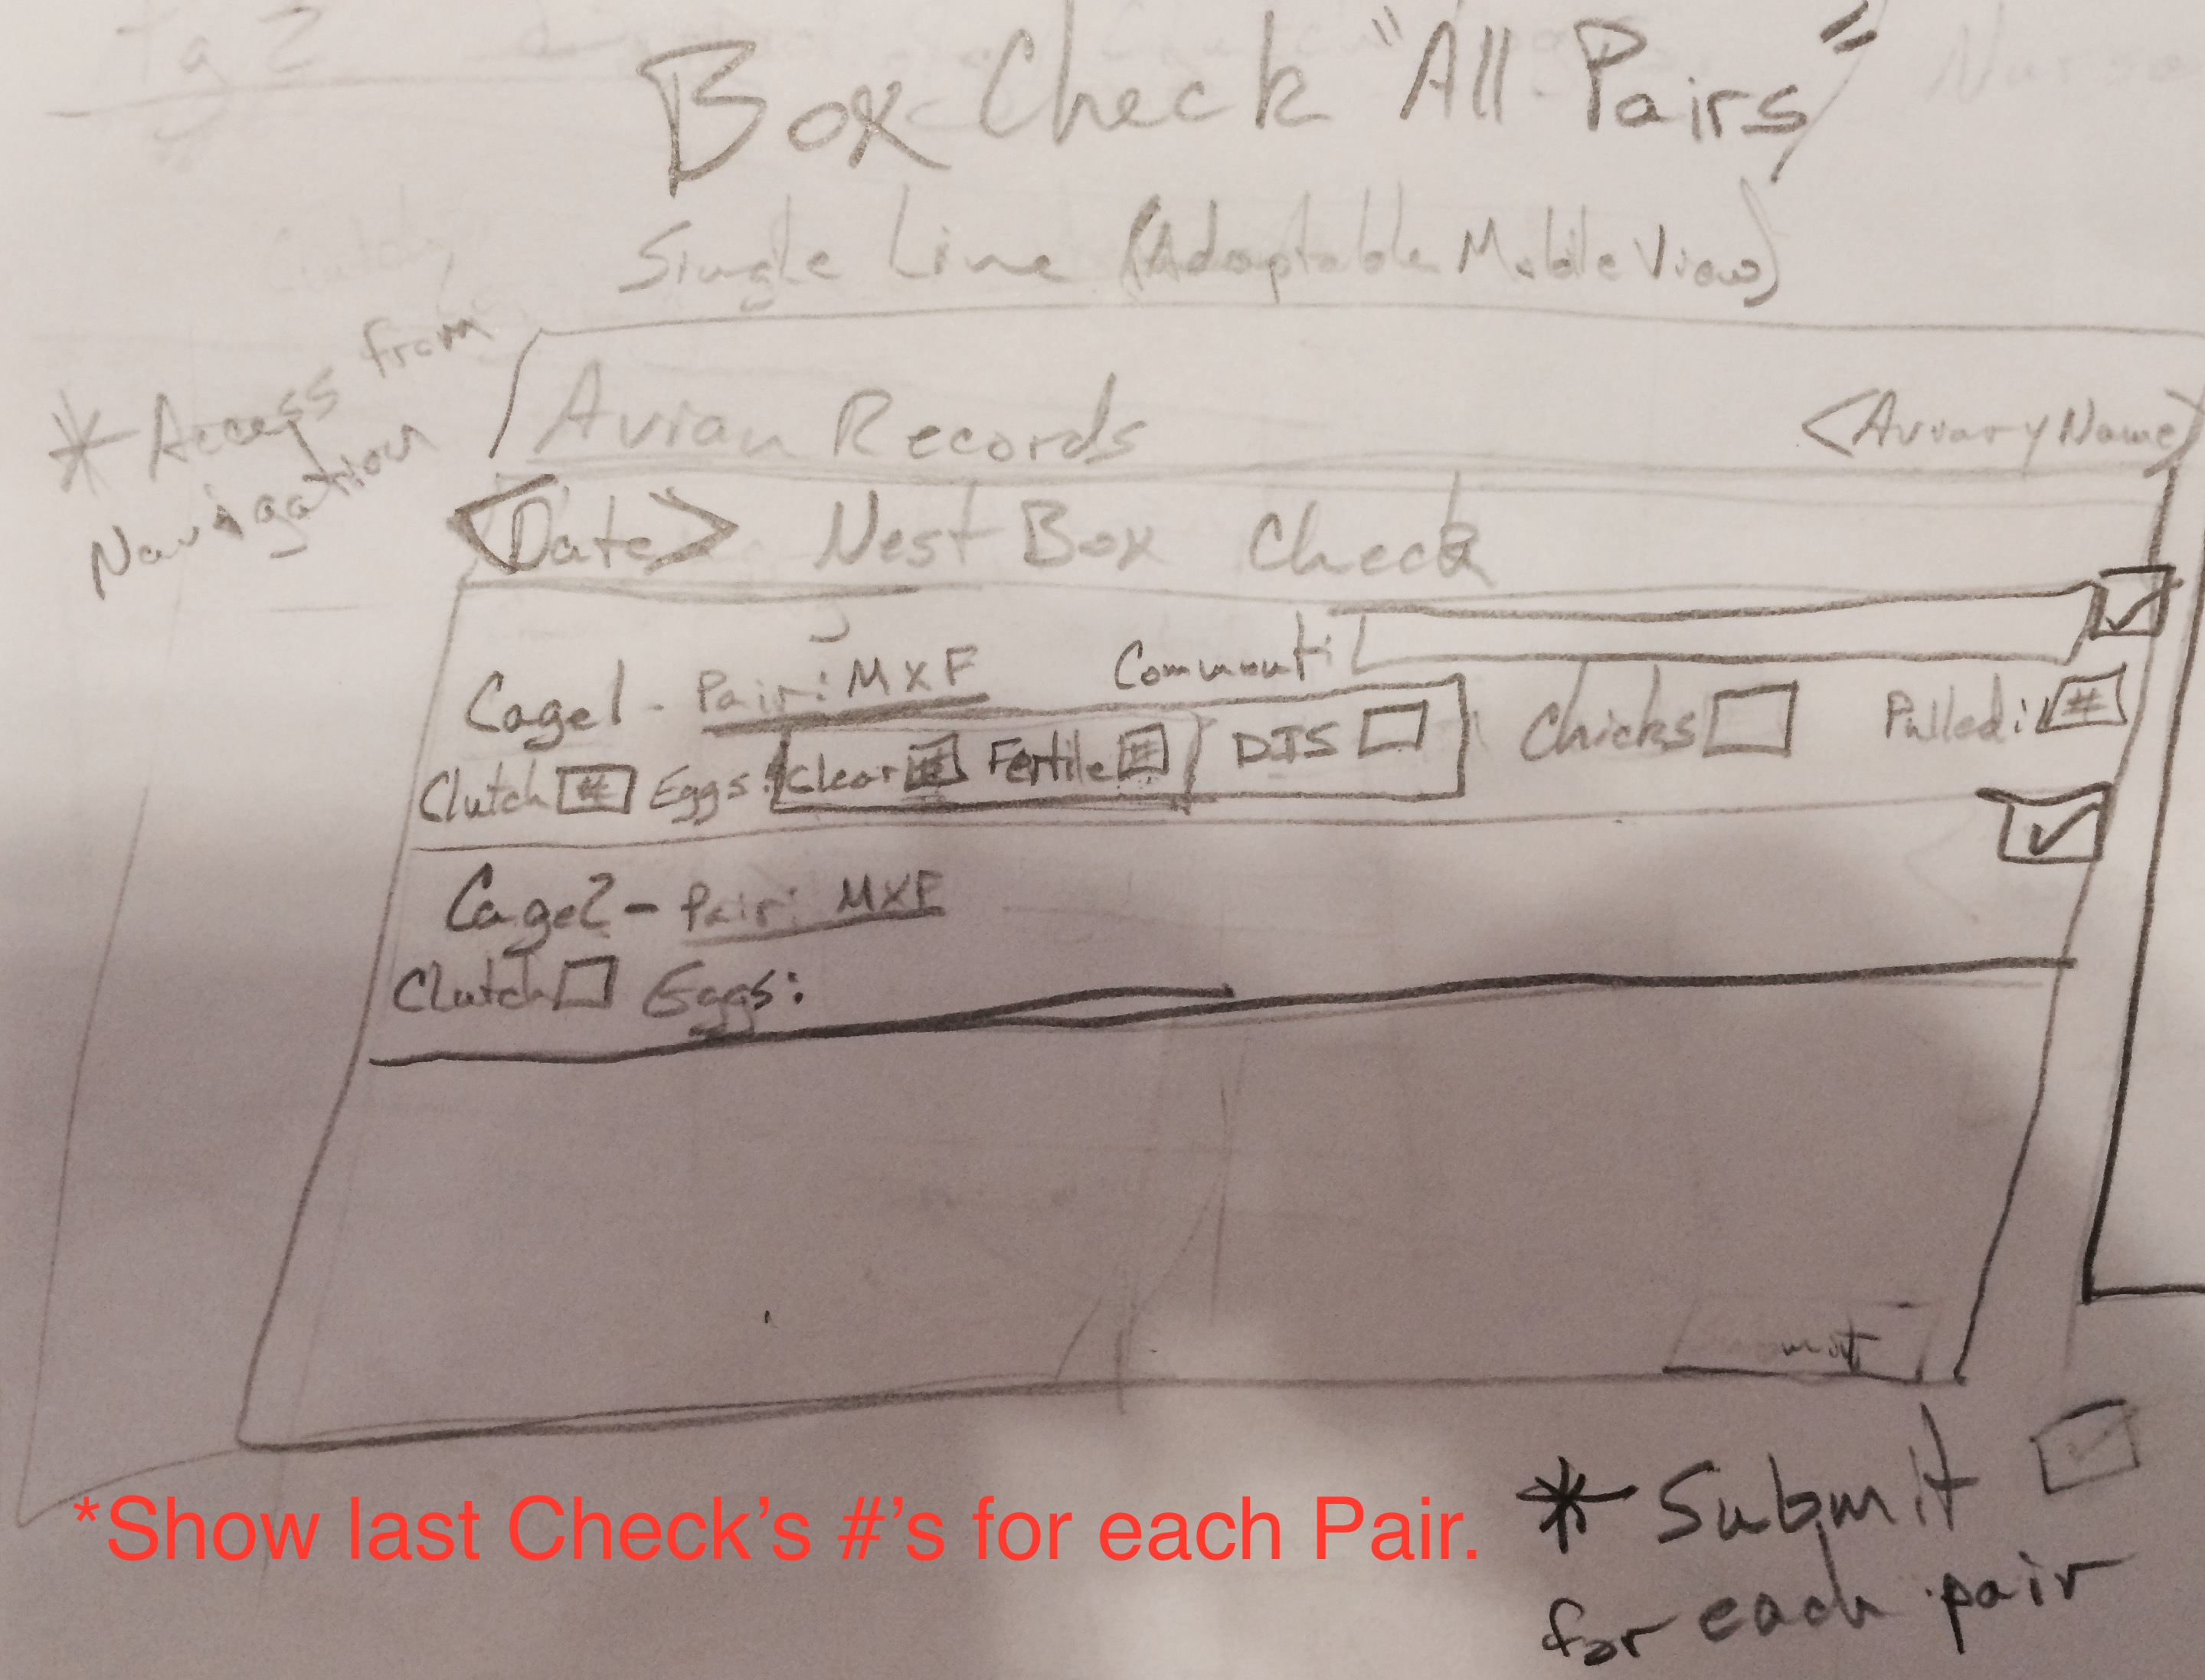 Box Check "All Pairs"
Single Line (Adaptable Mobile View)
* Access from
Navigation
Avian Records <Aviary Name>
<Date> Nest Box Check
Cage1 - Pair: MXF Comment:
Clutch # Eggs: Clear # Fertile # DIS Chicks Pulled: #
Cage2 - Pair: MXF
Clutch Eggs:
*Show last Check's #'s for each Pair.
* Submit
for each pair